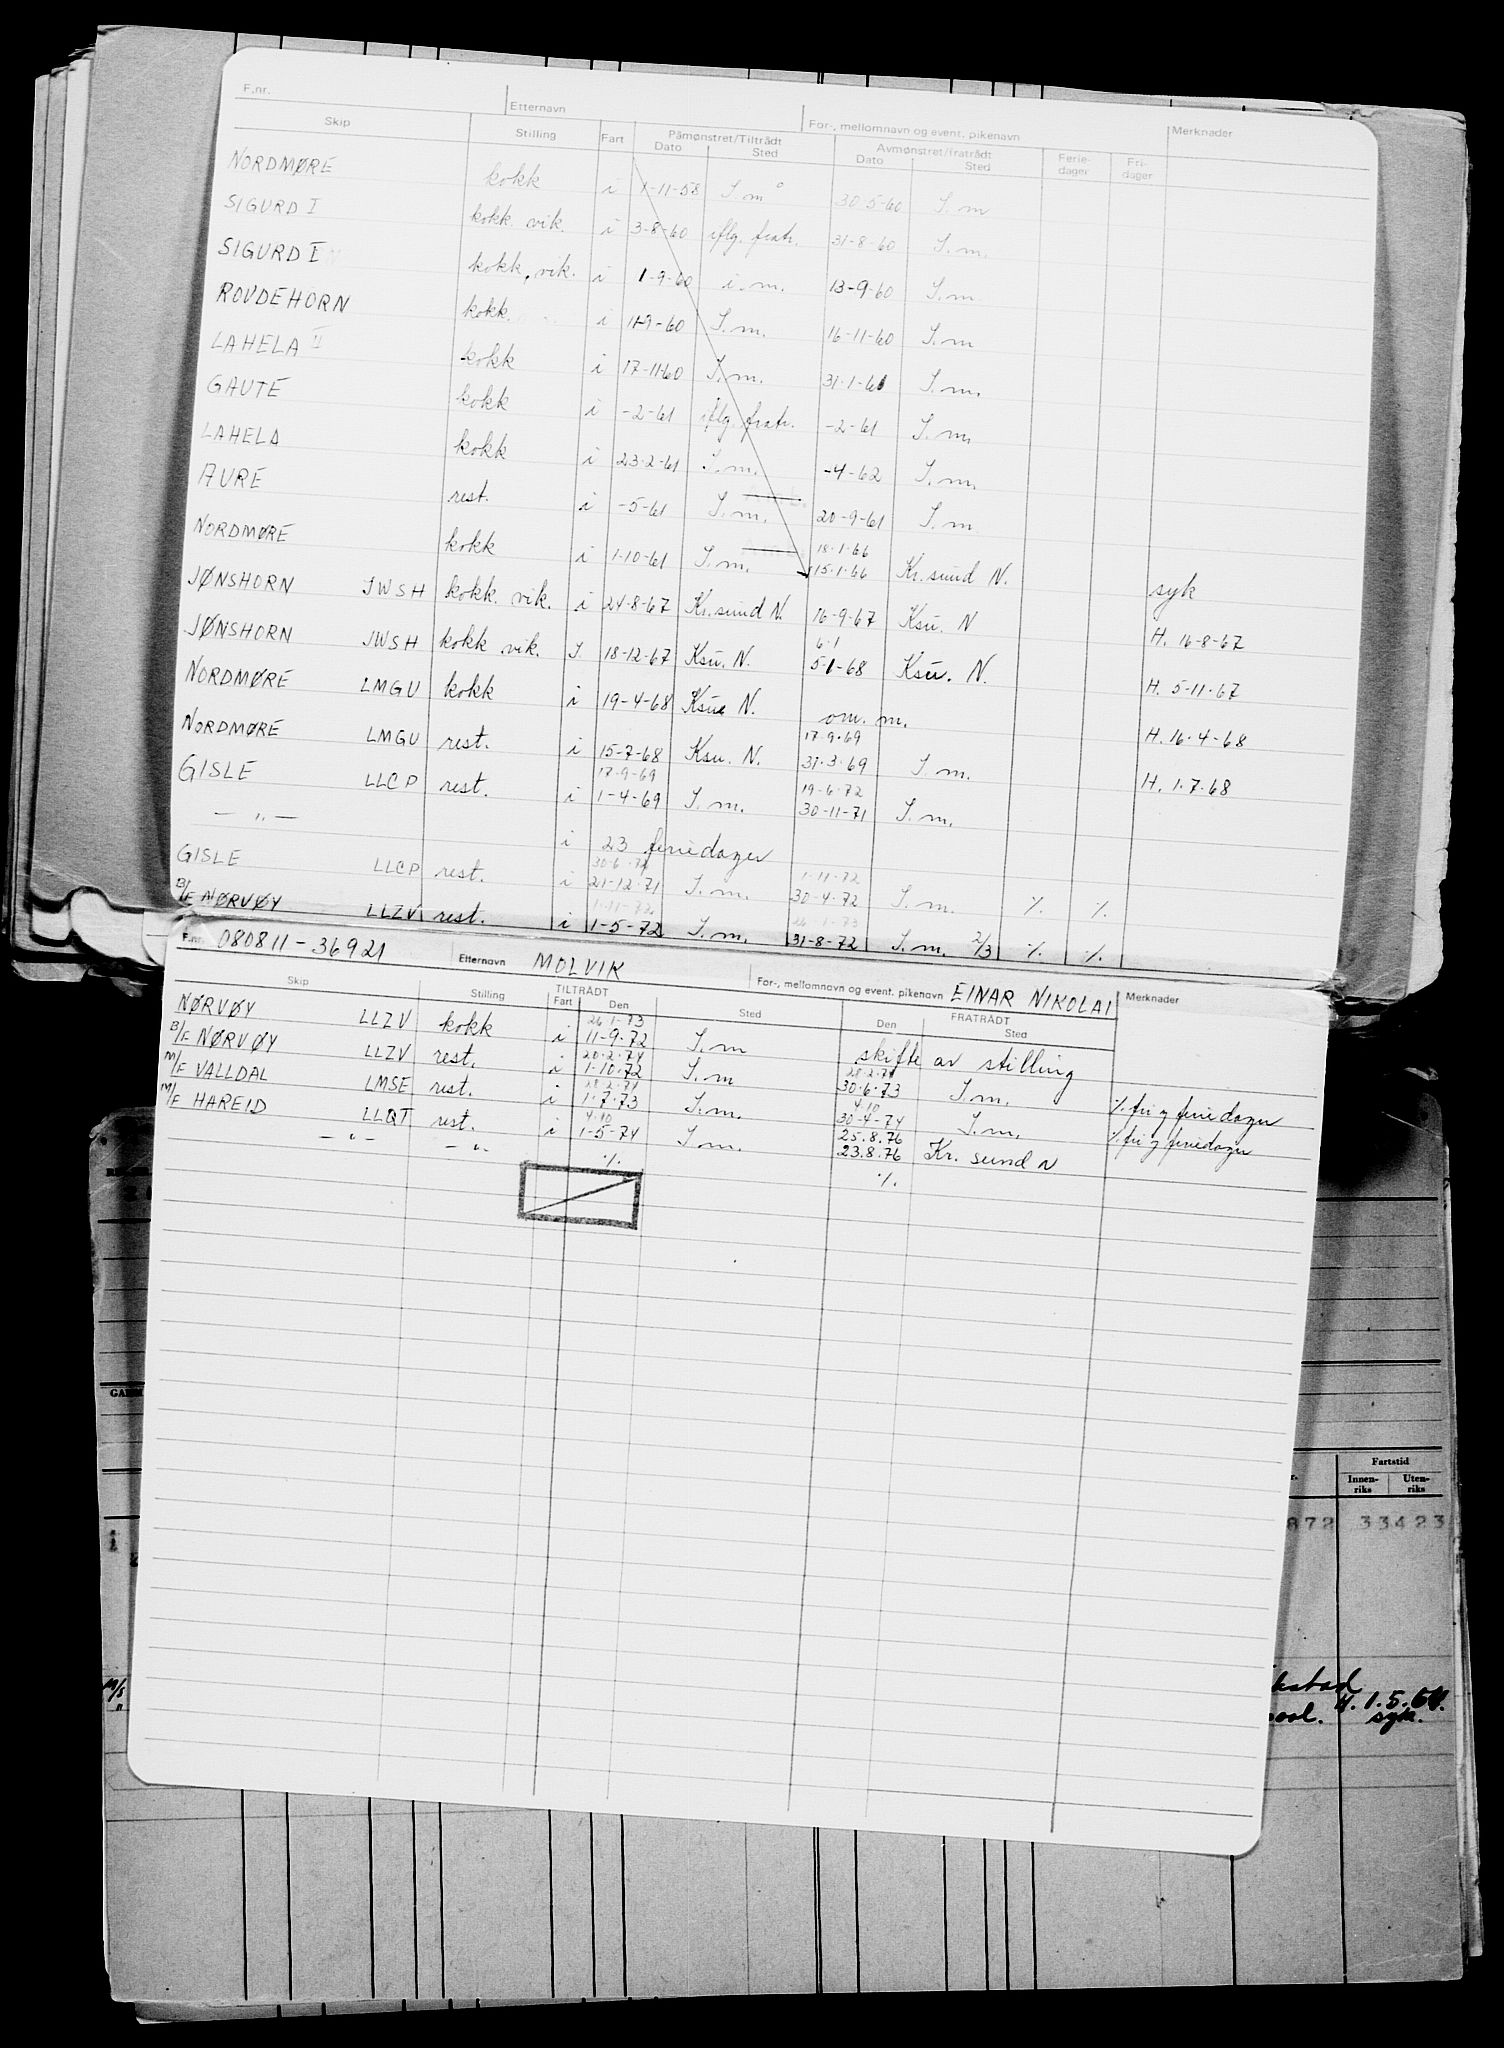 F.nr. Etternavn For-, mellomnavn og event. pikenavn Merknader
Skip Stilling Fart Påmønstret/Tiltrådt Dato Sted Avmønstret/fratrådt Dato Sted Ferie-dager Fri-dager
NORDMØRE kokk i 1-11-58 I.m 30-5-60 I.m
SIGURD I kokk. vik. i 3-8-60 iflg. fratr. 31-8-60 I.m.
SIGURD I kokk, vik. i 1-9-60 i.m. 13-9-60 I.m
ROVDEHORN kokk. i 11-9-60 I.m. 16-11-60 I.m
LAHELA II kokk i 17-11-60 I.m. 31-1-61 I.m.
GAUTE kokk i -2-61 iflg. fratr. -2-61 I.m.
LAHELA kokk i 23-2-61 I.m. -4-62 I.m.
AURE rest. i -5-61 I.m. 20-9-61 I.m
18-1-66
NORDMØRE kokk i 1-10-61 I.m. 15-1-66 Kr.sund N. syk
JØNSHORN JWSH kokk. vik. i 24-8-67 Kr.sund N. 16-9-67 Ksu. N H. 16-8-67
6-1
JØNSHORN JWSH kokk vik. I. 18-12-67 Ksu. N. 5-1-68 Ksu. N. H. 5-11-67
NORDMØRE LMGU kokk i 19-4-68 Ksu. N. om. m. H. 16-4-68
17-9-69
NORDMØRE LMGU rest. i 15-7-68 Ksu. N. 31-3-69 I.m. H. 1-7-68
17-9-69 19-6-72
GISLE LLCP rest. i 1-4-69 I.m. 30-11-71 I.m.
— " — i 23 feriedager
30-6-72 1-11-72
GISLE LLCP rest. i 21-12-71 I.m. 30-4-72 I.m. % %
1-11-72 26-1-73
B/F NØRVØY LLZV rest. i 1-5-72 I.m. 31-8-72 I.m. 2/3 % %
F.nr. 080811-36921 Etternavn MOLVIK For-, mellomnavn og event. pikenavn EINAR NIKOLAI Merknader
Skip Stilling TILTRÅDT Fart Den Sted FRATRÅDT Den Sted
26-1-73
NØRVØY LLZV kokk i 11-9-72 I.m skifte av stilling
20-2-74 28-2-74
B/F NØRVØY LLZV rest. i 1-10-72 I.m 30-6-73 I.m. % fri og feriedager
28-2-74 4-10
M/F VALLDAL LMSE rest. i 1-7-73 I.m. 30-4-74 I.m. % fri og feriedager
4-10 25.8.76
M/F HAREID LLQT rest. i 1-5-74 I.m. 23.8.76 Kr. sund N
— " — — " % %
Fartstid
Innen-riks Uten-riks
872 33423
M/S H. 1.5.64.
" syk.